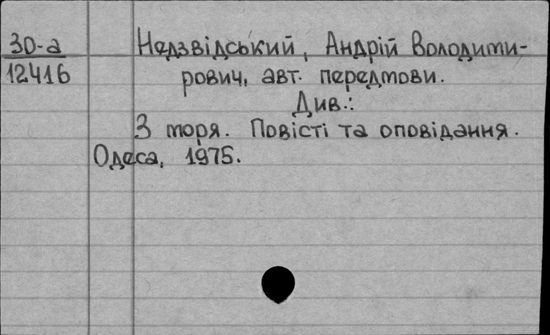 30-а
12416
Недзвідський, Андрій Володими-
рович, авт. передмови.
Див.:
З моря. Повісті та оповідання.
Одеса, 1975.